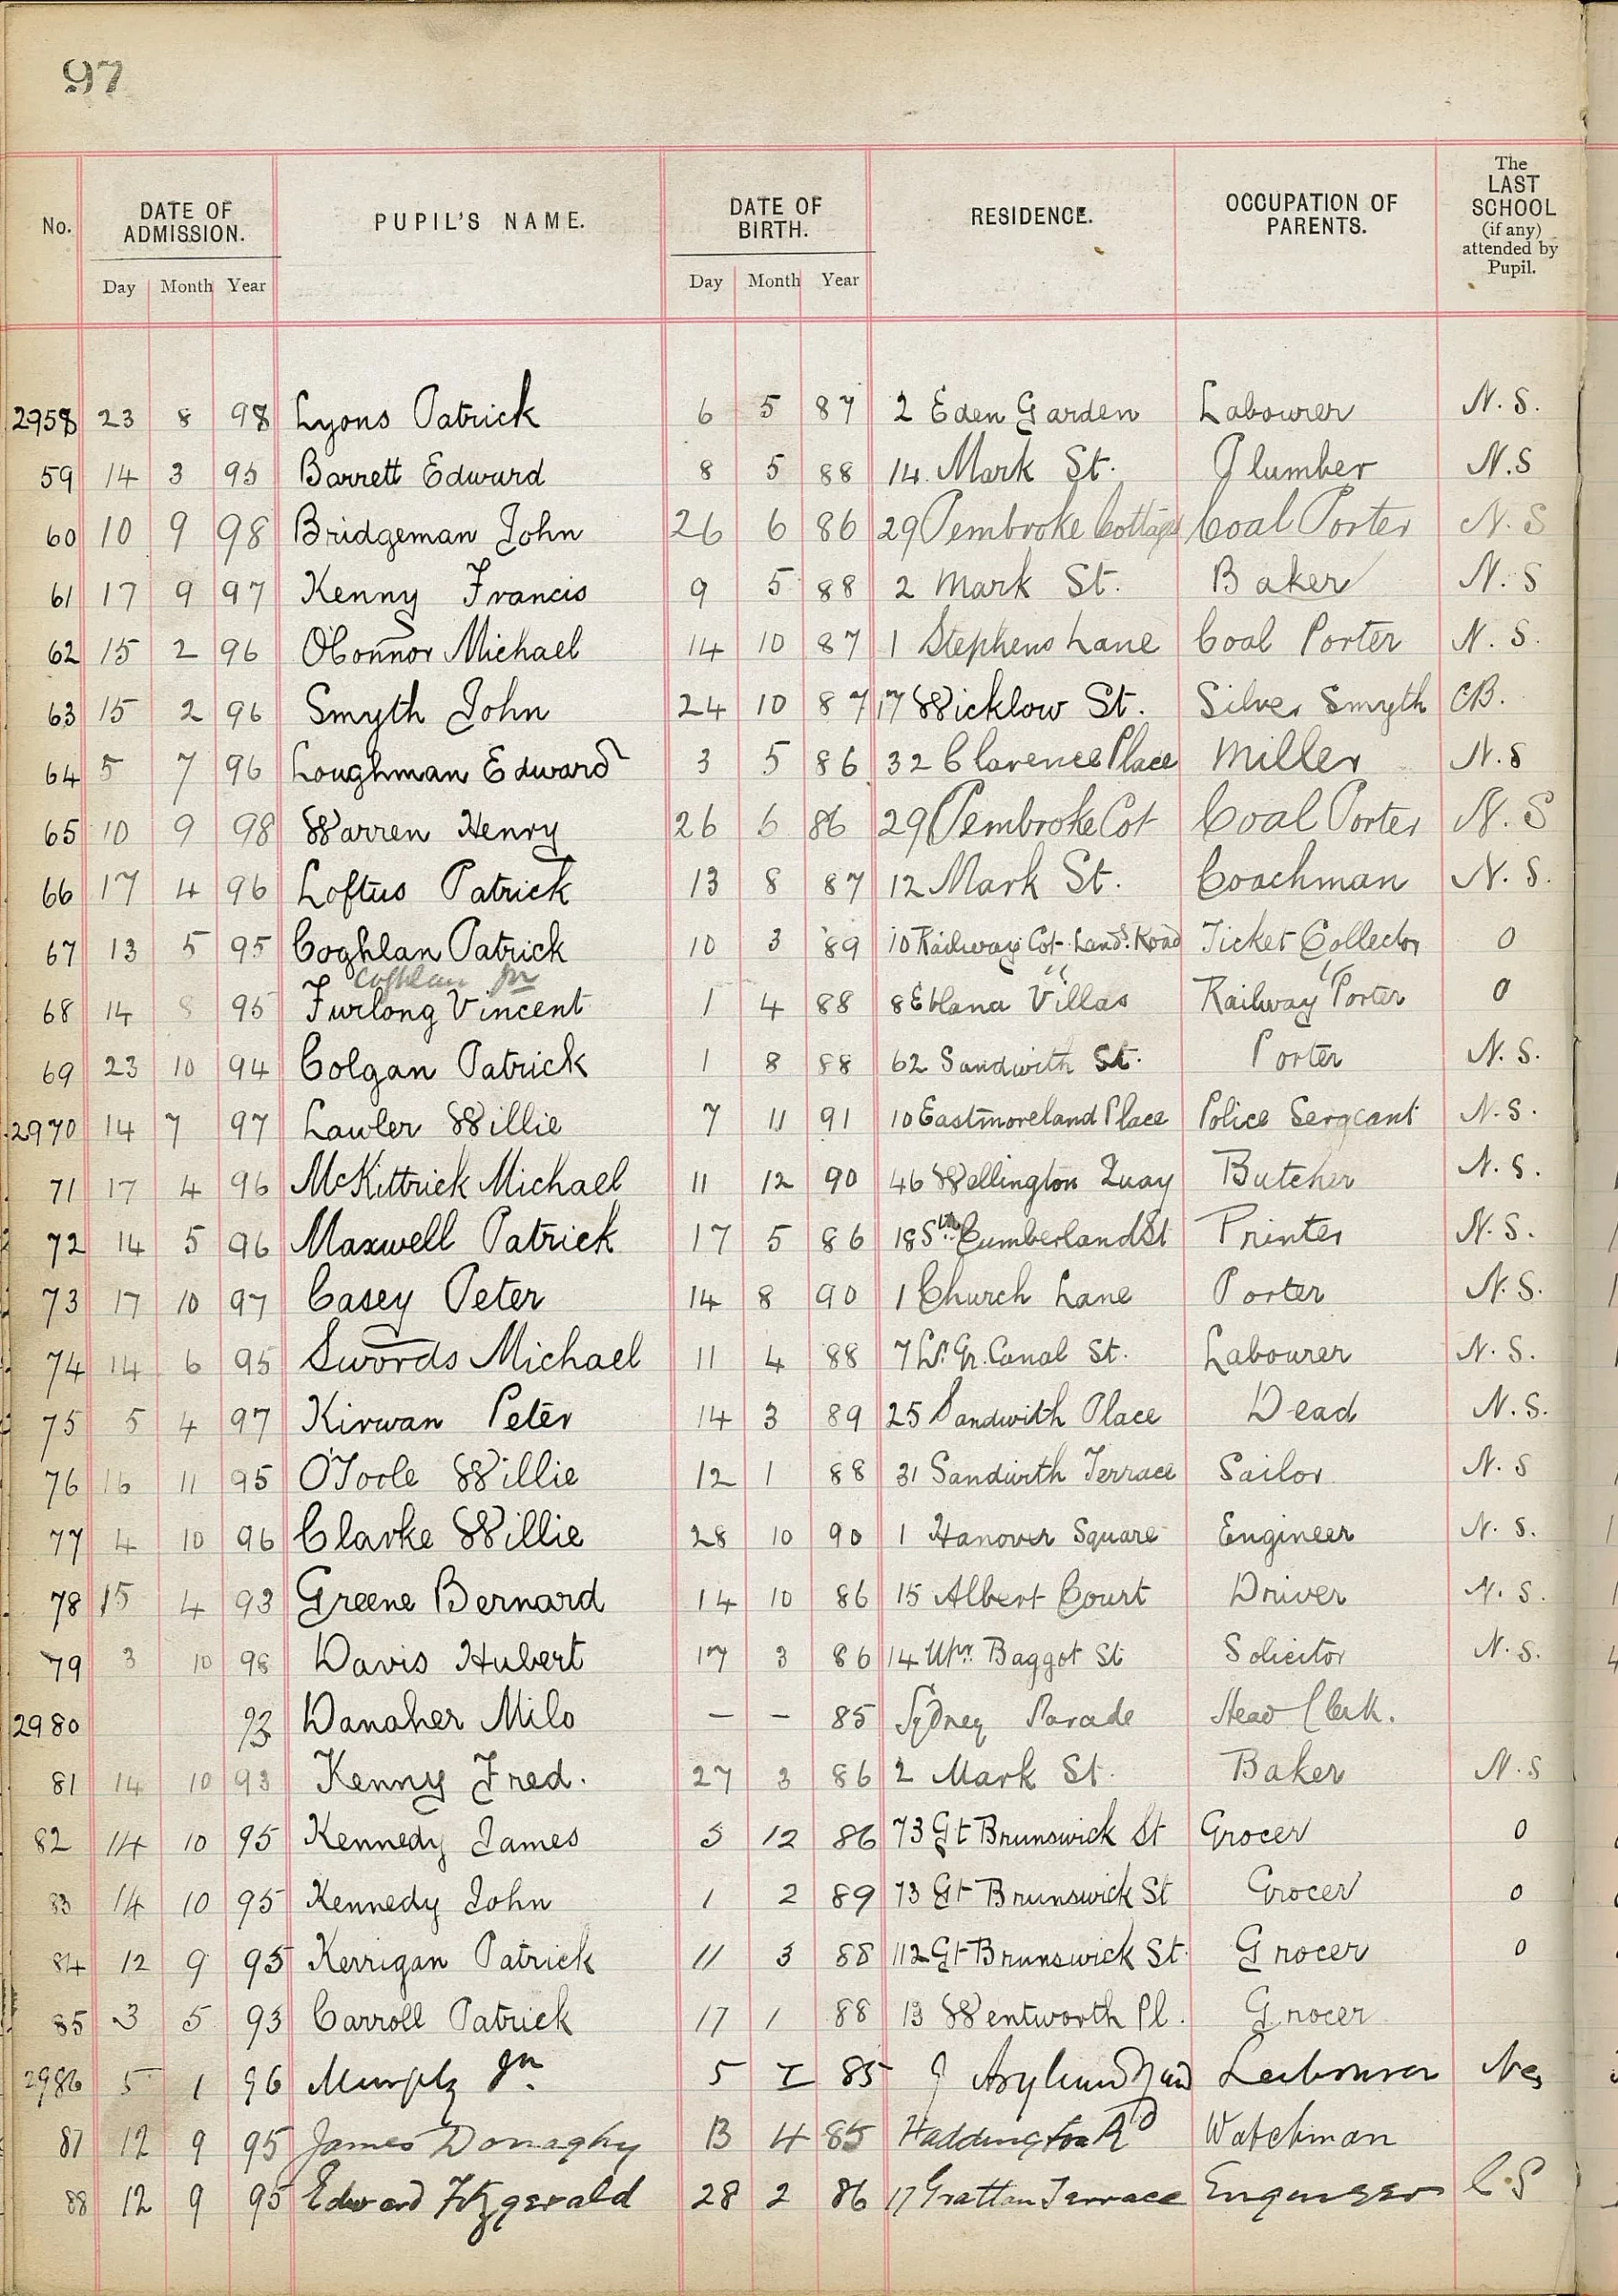 97
No. DATE OF ADMISSION. PUPIL'S NAME. DATE OF BIRTH. RESIDENCE. OCCUPATION OF PARENTS. The LAST SCHOOL (if any) attended by Pupil.
Day Month Year Day Month Year
2958 23 8 98 Lyons Patrick 6 5 87 2 Eden Garden Labourer N. S.
59 14 3 95 Barrett Edward 8 5 88 14 Mark St. Plumber N.S
60 10 9 98 Bridgeman John 26 6 86 29 Pembroke Cottags Coal Porter N. S
61 17 9 97 Kenny Francis 9 5 88 2 Mark St. Baker N. S
62 15 2 96 O'Connor Michael 14 10 87 1 Stephens Lane Coal Porter N. S.
63 15 2 96 Smyth John 24 10 87 17 Wicklow St. Silver Smyth CB.
64 5 7 96 Loughman Edward 3 5 86 32 Clarence Place Miller N. S
65 10 9 98 Warren Henry 26 6 86 29 Pembroke Cot Coal Porter N. S
66 17 4 96 Loftus Patrick 13 8 87 12 Mark St. Coachman N. S.
67 13 5 95 Coghlan Patrick 10 3 89 10 Railway Cot. Lans. Road Ticket Collector 0
Coghlan Jn " "
68 14 8 95 Furlong Vincent 1 4 88 8 Eblana Villas Railway Porter 0
69 23 10 94 Colgan Patrick 1 8 88 62 Sandwith St. Porter N. S.
2970 14 7 97 Lawler Willie 7 11 91 10 Eastmoreland Place Police Sergeant N. S.
71 17 4 96 McKittrick Michael 11 12 90 46 Wellington Quay Butcher N. S.
72 14 5 96 Maxwell Patrick 17 5 86 18 Sth. Cumberland St Printer N. S.
73 17 10 97 Casey Peter 14 8 90 1 Church Lane Porter N. S.
74 14 6 95 Swords Michael 11 4 88 7 Lr. Gr. Canal St. Labourer N. S.
75 5 4 97 Kirwan Peter 14 3 89 25 Sandwith Place Dead N. S.
76 16 11 95 O'Toole Willie 12 1 88 31 Sandwith Terrace Sailor N. S
77 4 10 96 Clarke Willie 28 10 90 1 Hanover Square Engineer N. S.
78 15 4 93 Greene Bernard 14 10 86 15 Albert Court Driver N. S.
79 3 10 98 Davis Hubert 17 3 86 14 Upr. Baggot St Solicitor N. S.
2980 93 Danaher Milo — — 85 Sydney Parade Head Clerk.
81 14 10 93 Kenny Fred. 27 3 86 2 Mark St. Baker N. S
82 14 10 95 Kennedy James 5 12 86 73 Gt Brunswick St Grocer 0
83 14 10 95 Kennedy John 1 2 89 73 Gt Brunswick St Grocer 0
84 12 9 95 Kerrigan Patrick 11 3 88 112 Gt Brunswick St. Grocer 0
85 3 5 93 Carroll Patrick 17 1 88 13 Wentworth Pl. Grocer
2986 5 1 96 Murphy Jn. 5 I 85 Asylum Yard Labourer
87 12 9 95 James Donaghy 13 4 85 Haddington Rd Watchman
88 12 9 95 Edward Fitzgerald 28 2 86 17 Grattan Terrace Engineer C. S